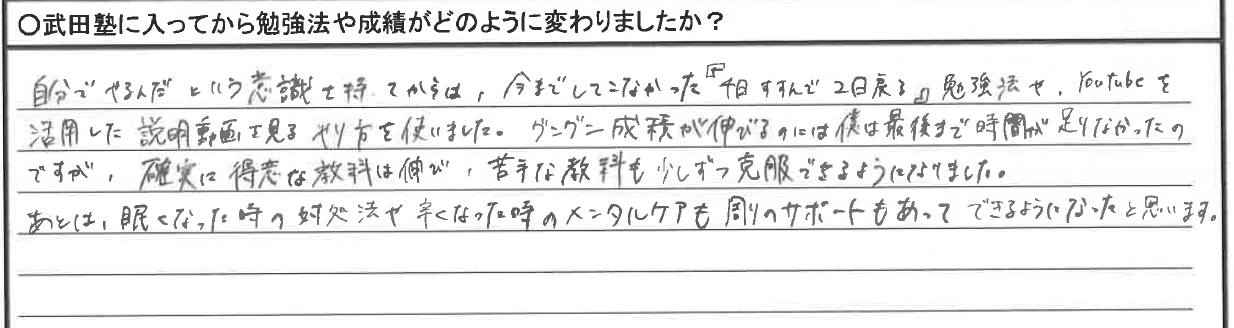 〇武田塾に入ってから勉強法や成績がどのように変わりましたか？
自分でやるんだという意識を持てからは，今までしてこなかった『4日すすんで2日戻る』勉強法や，Youtubeを
活用した説明動画を見るやり方を使いました。グングン成積が伸びるのには僕は最後まで時間が足りなかったの
ですが，確実に得意な教科は伸び，苦手な教科も少しずつ克服できるようになりました。
あとは，眠くなった時の対処法や辛くなった時のメンタルケアも周りのサポートもあってできるようになったと思います。